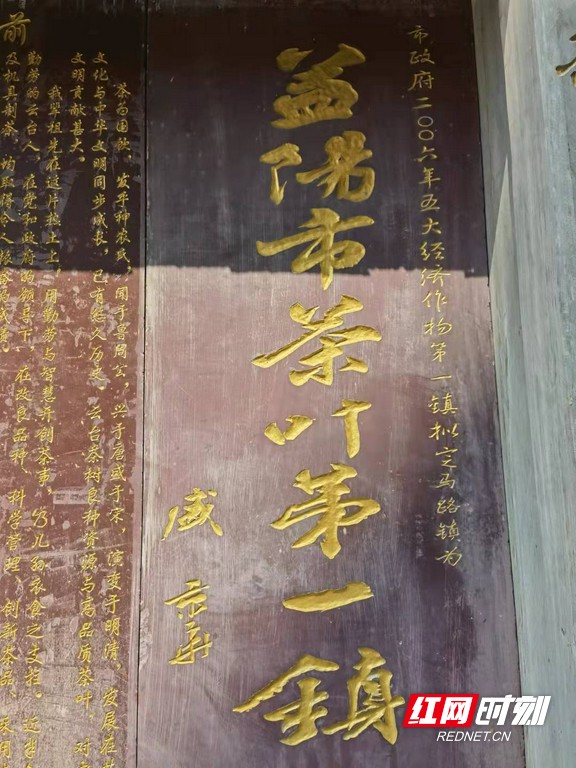 市政府二〇〇六年五大经济作物第一镇拟定马路镇为
益阳市茶叶第一镇
盛京华
茶为国饮，发乎神农氏，闻于鲁周公，兴于唐盛于宋，演变于明清，发展在
文化与中华文明同步成长，已有悠久历史。云台茶树良种资源与高品质茶叶，对
文明贡献甚大。
我辈祖先在这片热土上，用勤劳与智慧开创茶事，乃儿孙衣食之支柱。近
勤劳的云台人，在党和政府的领导下，在改良品种、科学管理、创新茶品、
及机具制茶，均取得令人
前
红网时刻
REDNET.CN